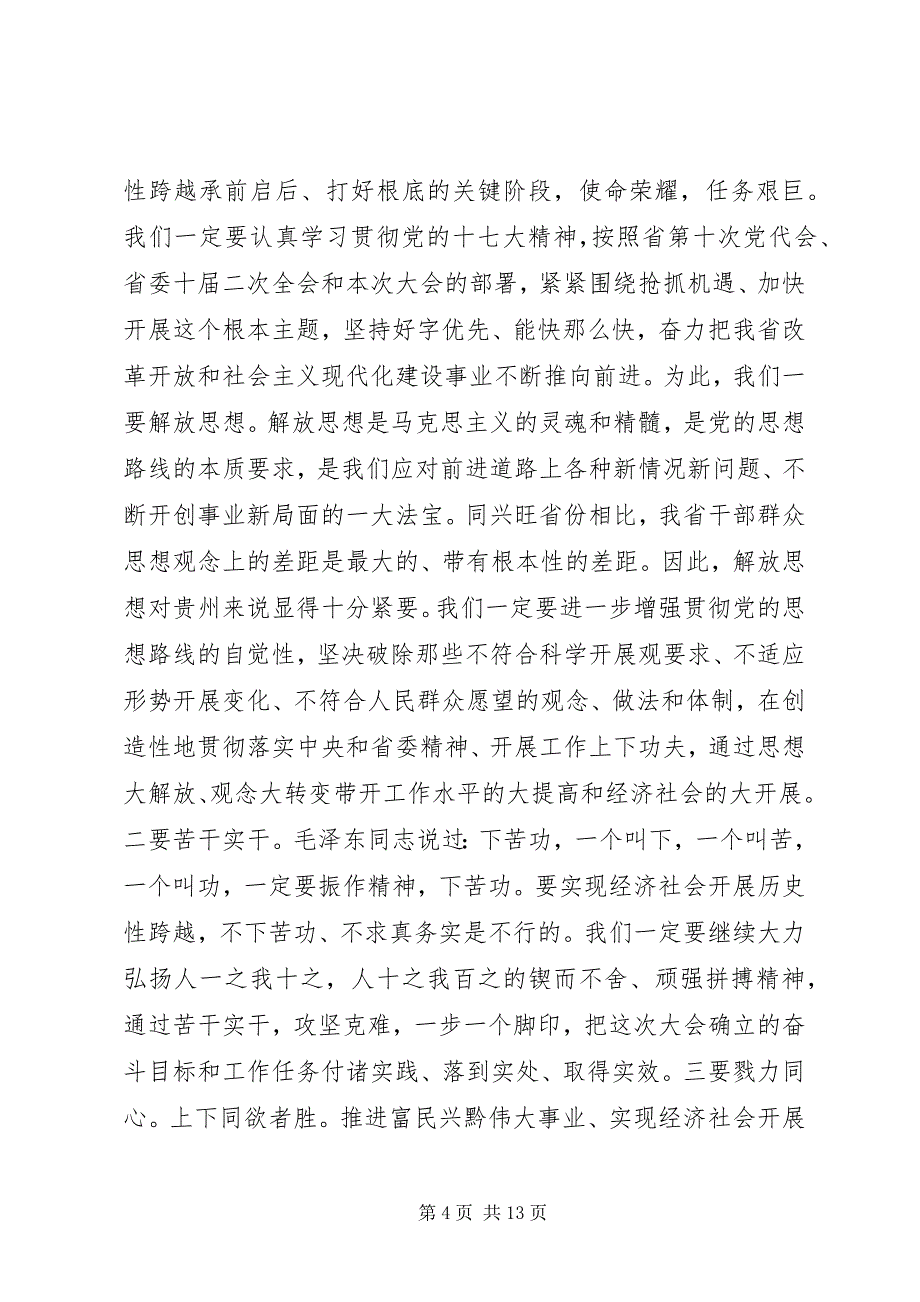 性跨越承前启后、打好根底的关键阶段，使命荣耀，任务艰巨。
我们一定要认真学习贯彻党的十七大精神，按照省第十次党代会、
省委十届二次全会和本次大会的部署，紧紧围绕抢抓机遇、加快
开展这个根本主题，坚持好字优先、能快那么快，奋力把我省改
革开放和社会主义现代化建设事业不断推向前进。为此，我们一
要解放思想。解放思想是马克思主义的灵魂和精髓，是党的思想
路线的本质要求，是我们应对前进道路上各种新情况新问题、不
断开创事业新局面的一大法宝。同兴旺省份相比，我省干部群众
思想观念上的差距是最大的、带有根本性的差距。因此，解放思
想对贵州来说显得十分紧要。我们一定要进一步增强贯彻党的思
想路线的自觉性，坚决破除那些不符合科学开展观要求、不适应
形势开展变化、不符合人民群众愿望的观念、做法和体制，在创
造性地贯彻落实中央和省委精神、开展工作上下功夫，通过思想
大解放、观念大转变带开工作水平的大提高和经济社会的大开展。
二要苦干实干。毛泽东同志说过：下苦功，一个叫下，一个叫苦，
一个叫功，一定要振作精神，下苦功。要实现经济社会开展历史
性跨越，不下苦功、不求真务实是不行的。我们一定要继续大力
弘扬人一之我十之，人十之我百之的锲而不舍、顽强拼搏精神，
通过苦干实干，攻坚克难，一步一个脚印，把这次大会确立的奋
斗目标和工作任务付诸实践、落到实处、取得实效。三要戮力同
心。上下同欲者胜。推进富民兴黔伟大事业、实现经济社会开展
第 4 页 共 13 页